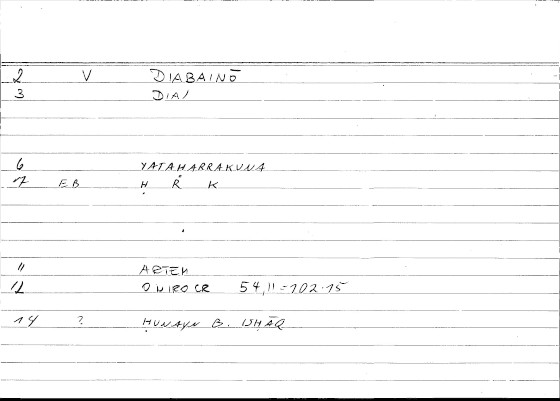 2 V DIABAINŌ
3 DIA/
6 YATAHARRAKUNA
7 EB Ḥ R K
11 ARTEM
12 ONIROCR 54,11=102.15
14 ? ḤUNAYN B. ISḤĀQ